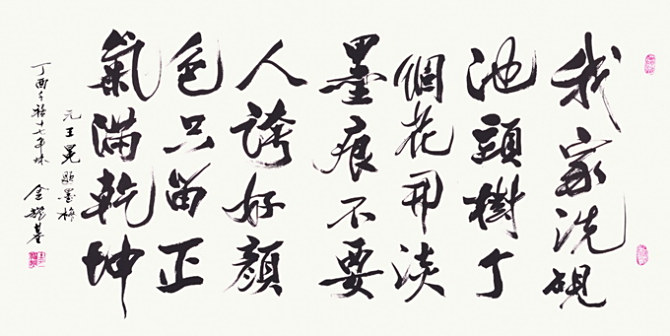 我家洗硯
池頭樹个
個花開淡
墨痕不要
人誇好顏
色只留正
氣滿乾坤
元王冕題墨梅
丁酉 十七年
金耀基